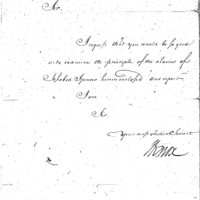 Sir,
I request that you would be so good
as to examine the principles of the claims of
Spencer herein enclosed and report
I am
Sir
Your most obedient Servant
HKnox